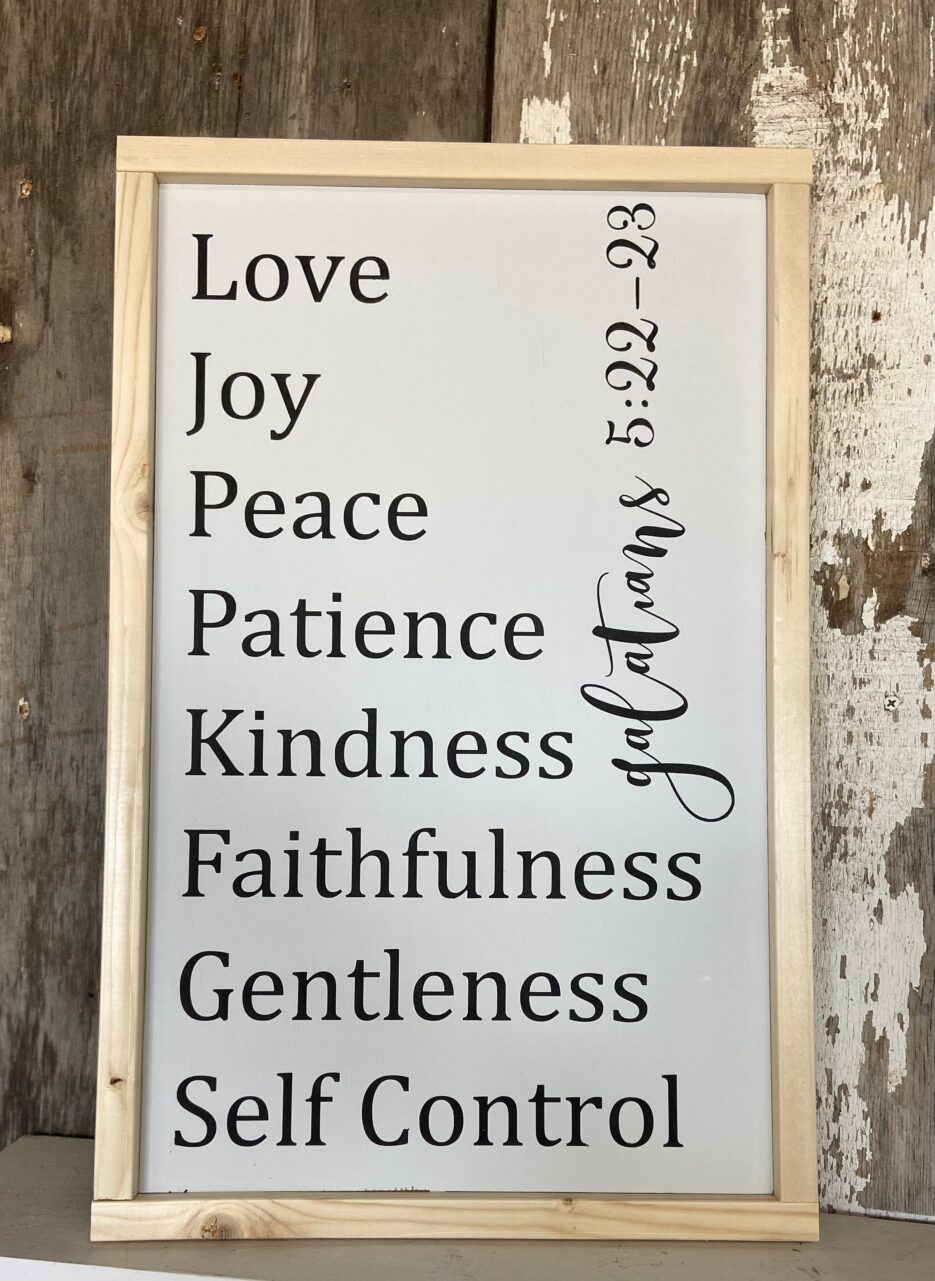 Love
Joy
Peace
Patience
Kindness
Faithfulness
Gentleness
Self Control
galatians 5:22-23